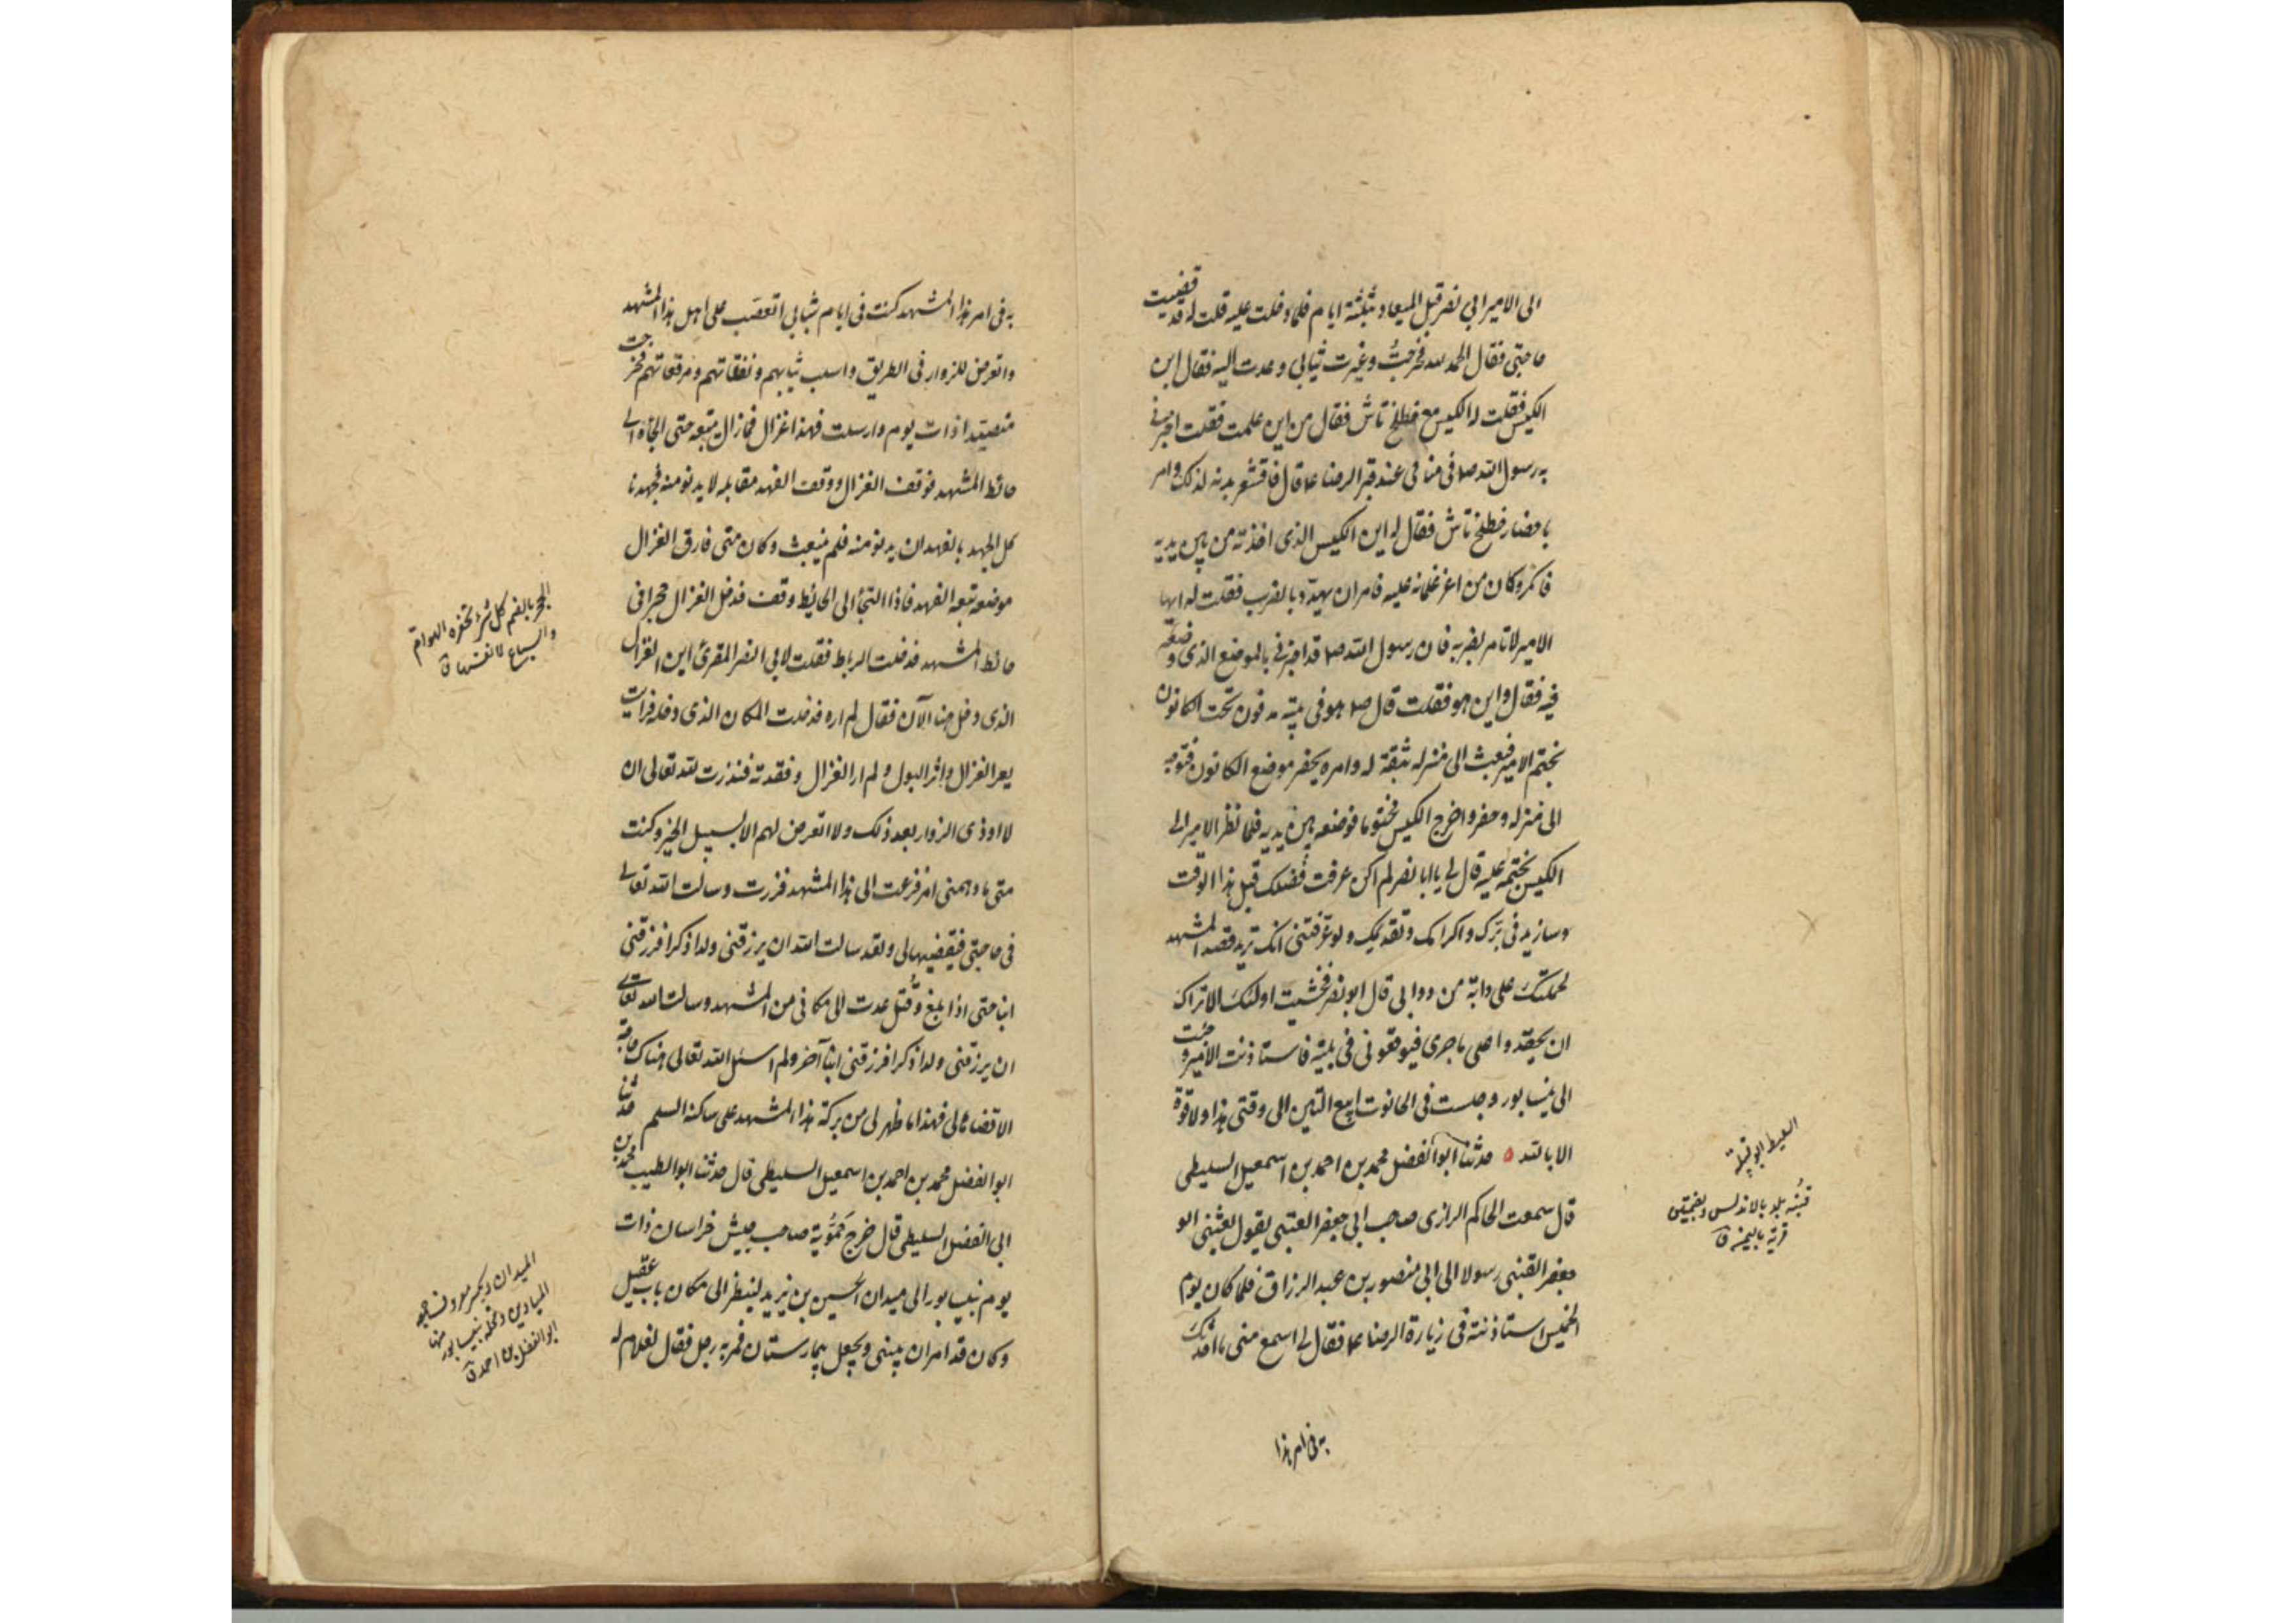 الى الامير ابي نصر قبل الميعاد بثلثة ايام فلما دخلت عليه قلت له قد قضيت
حاجتي فقال الحمد لله فخرجتُ وغيرت ثيابي وعدت اليه فقال اين
الكيس فقلت له الكيس مع خطلخ تاش فقال من اين علمت فقلت اخبرني
به رسول الله صلا في منامي عند قبر الرضا عا قال فاقشعر بدنه لذلك وامر
باحضار خطلخ تاش فقال له اين الكيس الذي اخذته من بين يديه
فانكر وكان من اعز غلمانه عليه فامر ان يهدّد بالضرب فقلت له ايها
الامير لا تامر بضربه فان رسول الله صلا قد اخبرني بالموضع الذي وضعه
فيه فقال واين هو فقلت قال صلا هو في بيته مدفون تحت الكانون
بختم الامير فبعث الى منزله بثقة له وامره بحفر موضع الكانون فتوجه
الى منزله وحفر واخرج الكيس مختوما فوضعه بين يديه فلما نظر الامير الى
الكيس بختمه عليه قال لي يا ابا نصر لم اكن عرفت فضلك قبل هذا الوقت
وسازيد في برّك واكرامك وتقديمك ولو عرّفتني انك تريد قصد المشهد
لحملتك على دابة من دوابي قال ابو نصر فخشيت اولئك الاتراك
ان يحقدوا على ما جرى فيوقعوني في بلية فاستاذنت الامير وجئت
الى نيسابور وجلست في الحانوت ابيع التبن الى وقتي هذا ولا قوة
الا بالله ه حدثنا ابو الفضل محمد بن احمد بن اسمعيل السليطي
قال سمعت الحاكم الرازي صاحب ابي جعفر العتبي يقول بعثني ابو
جعفر القبني رسولا الى ابي منصور بن عبد الرزاق فلما كان يوم
الخميس استاذنته في زيارة الرضا عا فقال لي اسمع مني ما احدثك
به في امر هذا
السليط ابو قبيلة
قُبنه بلد بالاندلس وبضمتين
قرية باليمن ق
به في امر هذا المشهد كنت في ايام شبابي اتعصّب على اهل هذا المشهد
واتعرض للزوار في الطريق واسلب ثيابهم ونفقاتهم ومرقعاتهم فخرجت
متصيّدا ذات يوم وارسلت فهدا غزال فما زال يتبعه حتى الجاه الى
حائط المشهد فوقف الغزال ووقف الفهد مقابله لا يدنو منه فجهدنا
كل الجهد بالفهد ان يدنو منه فلم ينبعث وكان متى فارق الغزال
موضعه تبعه الفهد فاذا التجأ الى الحائط وقف فدخل الغزال حجرا في
حائط المشهد فدخلت الرباط فقلت لابي النصر المقرئ اين الغزال
الذي دخل هنا الآن فقال لم اره فدخلت المكان الذي دخله فرايت
بعر الغزال واثر البول ولم ار الغزال وفقدته فنذرت لله تعالى ان
لا اوذي الزوار بعد ذلك ولا اتعرض لهم الا بسبيل الخير وكنت
متى ما دهمني امر فزعت الى هذا المشهد فزرت وسالت الله تعالى
في حاجتي فيقضيها لي ولقد سالت الله ان يرزقني ولدا ذكرا فرزقني
ابنا حتى اذا بلغ وقُتل عدت الى مكاني من المشهد وسالت الله تعالى
ان يرزقني ولدا ذكرا فرزقني ابنا آخر ولم اسئل الله تعالى هناك حاجة
الا قضاها لي فهذا ما ظهر لي من بركة هذا المشهد على ساكنه السلم حدثنا
ابو الفضل محمد بن احمد بن اسمعيل السليطي قال حدثنا ابو الطيب محمد بن
ابي الفضل السليطي قال خرج حَمُّوية صاحب جيش خراسان ذات
يوم بنيسابور الى ميدان الحسين بن يزيد لينظر الى مكان باب عقيل
وكان قد امر ان يبنى ويجعل بيمارستان فمر به رجل فقال لغلام له
الجحر بالضم كل شئ تحتفره الهوامّ
والسباع لانفسها ق
الميدان ويكسر معروف ج
الميادين ومحلة بنيسابور منها
ابو الفضل بن احمد ق